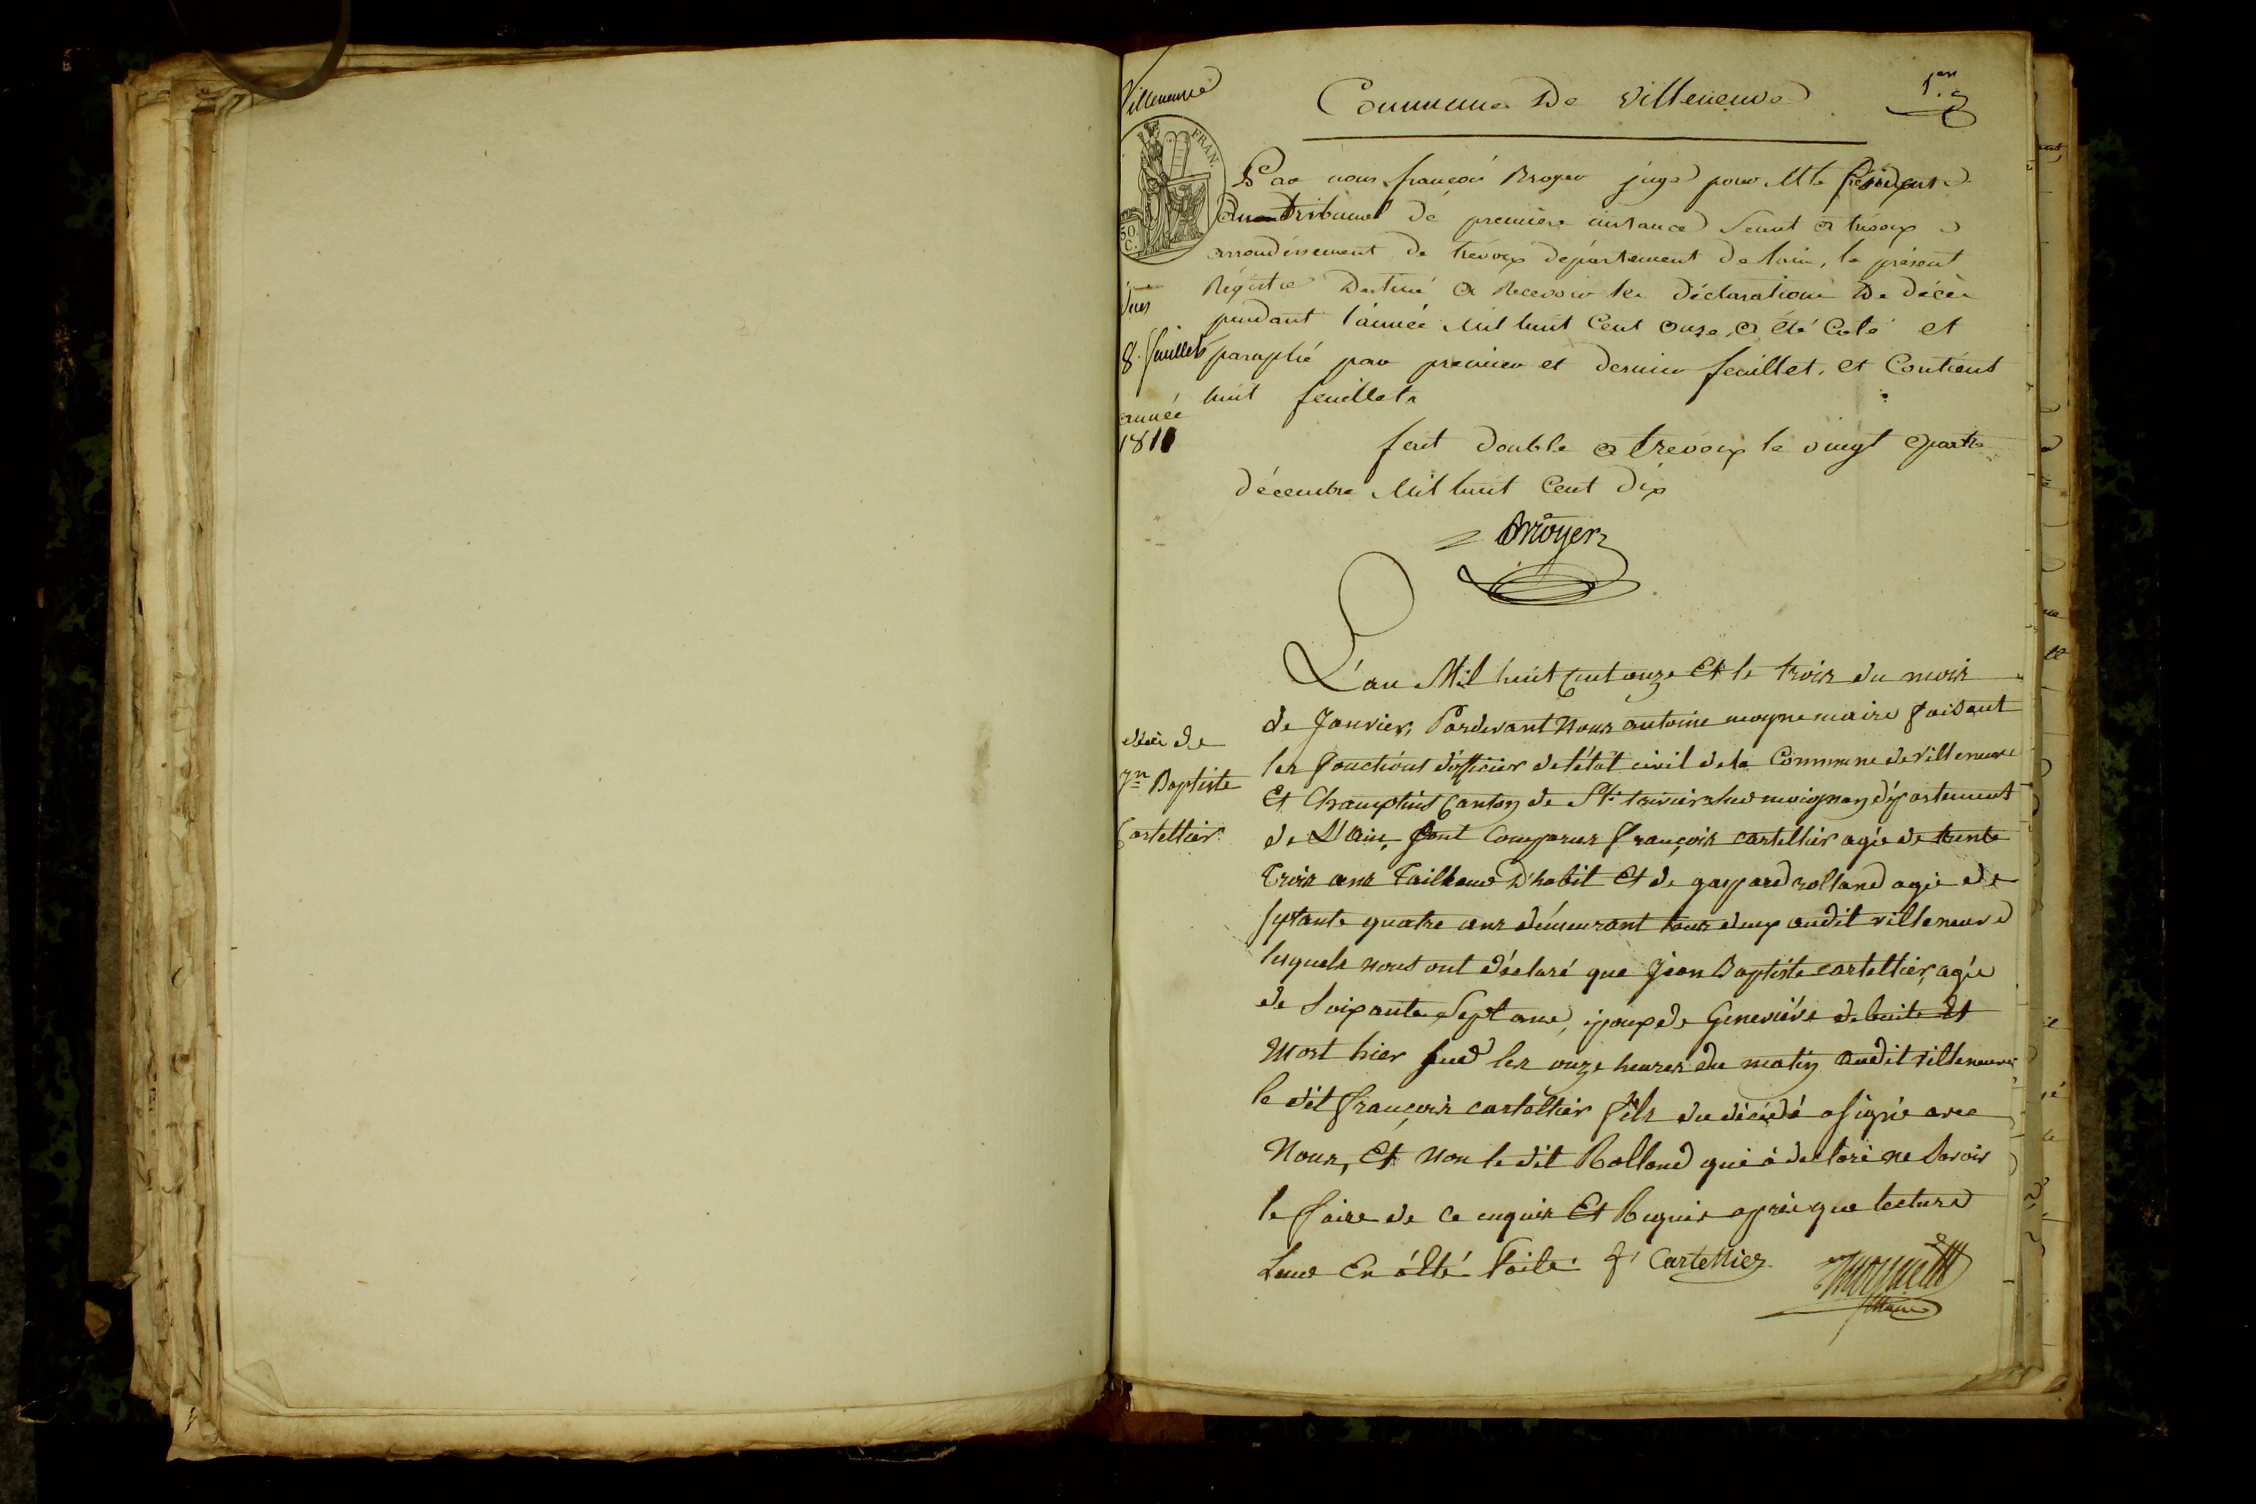 Villeneuve
Commune De Villeneuve
1.er
FRAN.
50.
C.
Par nous françois Broyer juge pour Mr le président
Du Tribunal de première instance Séant a trévoux
arrondissement de trévoux département de lain, le présent
Régistre Destiné a Recevoir les déclarations De décès
pendant l'année mil huit Cent onze, a été Coté et
8. feuillets
paraphé par premier et dernier feuillet, et Contient
huit feuillets
année
1811
fait double a trevoux le vingt quatre
décembre mil huit Cent dix
Broyer
L'an Mil huit Cent onze Et le trois du mois
de Janvier, Pardevant Nous antoine moyne maire faisant
les fonctions d'officier de l'état civil de la Commune de villeneuve
Et Champtins Canton de St. trivier sur moignan département
de L'Ain, Sont Comparus françois cartellier agé de trente
Trois ans Tailleur D'habit Et de gaspard rolland agé de
septante quatre ans démeurant tous deux audit villeneuve
lesquels nous ont déclaré que Jean Baptiste cartellier, agé
de Soixante Sept ans, époux de Geneviéve Est
Mort hier sur les onze heures du matin audit villeneuve
le dit françois cartellier fils du décédé a signé avec
Nous, Et Non le dit Rolland qui à declaré ne Savoir
le faire de ce enquis Et Requis après que lecture
Leur En a été faite. f. Cartellier
maire
décès de
Jn Baptiste
Cartellier